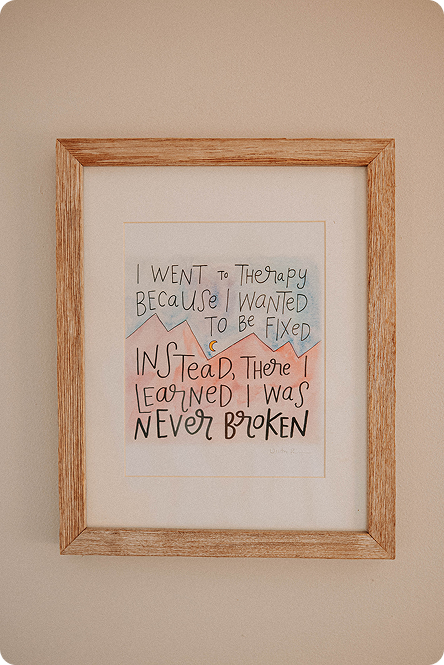 I WENT to THerapy
BECAUSE I WANTED
TO BE FIXED
INSTeaD, THere I
LEarNED I WAS
NEVer BroKEN